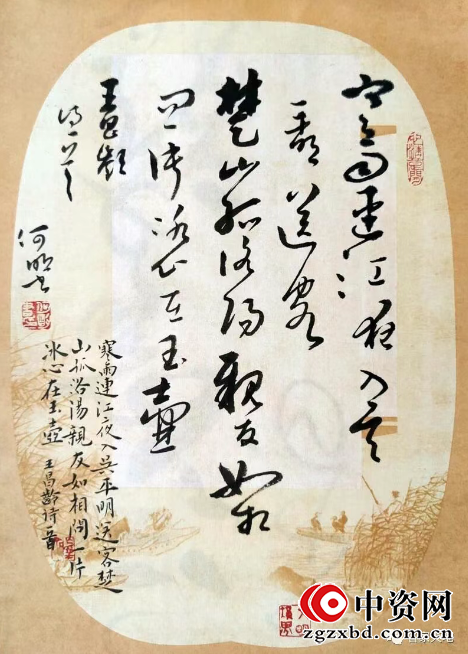 寒雨連江夜入吴
平明送客
楚山孤洛陽親友如相
问一片冰心在玉壺
王昌龄
诗一首
何明书
寒雨連江夜入吴平明送客楚
山孤洛陽親友如相問一片
冰心在玉壺 王昌齡诗一首
中资网
zgzxbd.com.cn